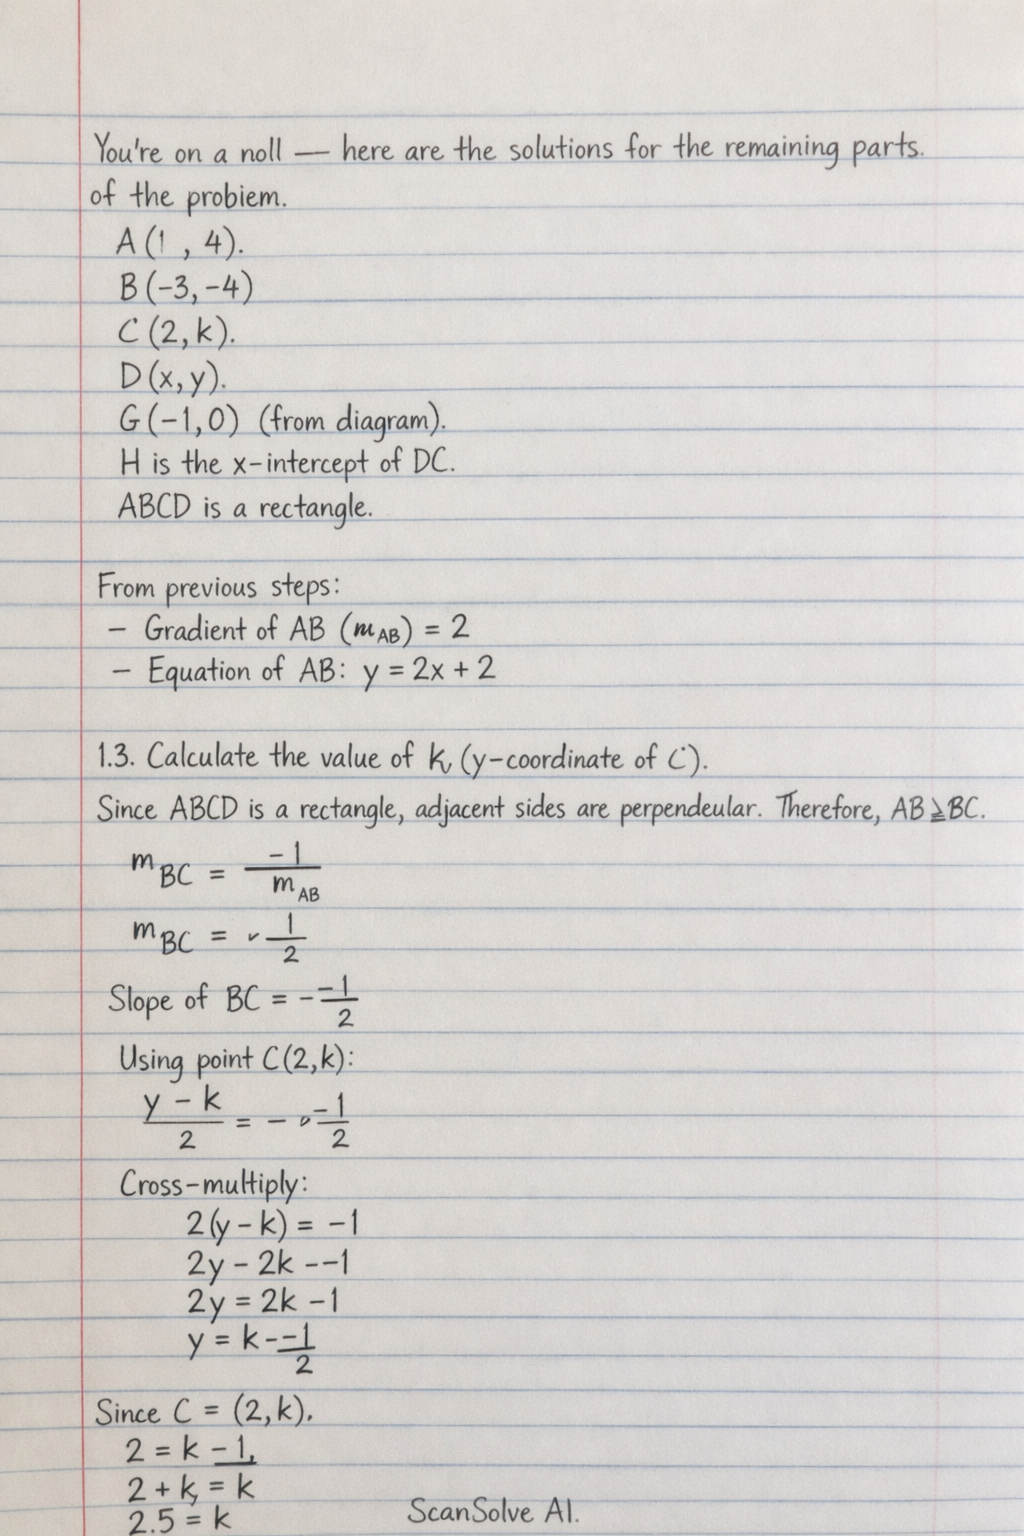 You're on a noll — here are the solutions for the remaining parts.
of the probiem.
A (1 , 4).
B (-3, -4)
C (2, k).
D (x, y).
G (-1, 0) (from diagram).
H is the x-intercept of DC.
ABCD is a rectangle.
From previous steps:
– Gradient of AB (m_AB) = 2
– Equation of AB: y = 2x + 2
1.3. Calculate the value of k, (y-coordinate of C).
Since ABCD is a rectangle, adjacent sides are perpendeular. Therefore, AB ⊥ BC.
m_BC = -1 / m_AB
m_BC = - 1/2
Slope of BC = - -1/2
Using point C(2, k):
y - k / 2 = - -1/2
Cross-multiply:
2(y - k) = -1
2y - 2k --1
2y = 2k -1
y = k - -1/2
Since C = (2, k).
2 = k -1,
2 + k, = k
2.5 = k
ScanSolve AI.